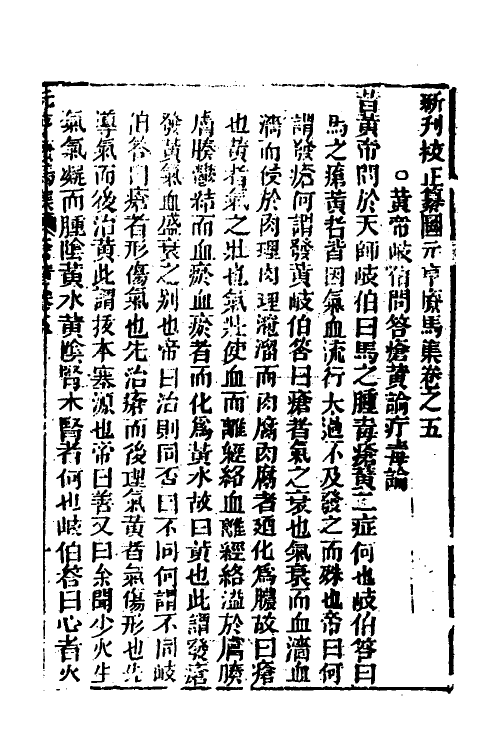 新刊校正纂圖元亨療馬集卷之五
○黃帝岐伯問答瘡黃論疔毒論
昔黃帝問於天師岐伯曰馬之腫毒瘡黃之症何也岐伯答曰
馬之瘡黃者皆因氣血流行太過不及發之而殊也帝曰何
謂發瘡何謂發黃岐伯答曰瘡者氣之衰也氣衰而血濇血
濇而侵於肉理肉理淹溜而肉腐肉腐者廼化為膿故曰瘡
也黃者氣之壯也氣壯使血而離經絡血離經絡溢於膚腠
膚腠鬱結而血瘀血瘀者而化為黃水故曰黃也此謂發瘡
發黃氣血盛衰之别也帝曰治則同否曰不同何謂不同岐
伯答曰瘡者形傷氣也先治瘡而後理氣黃者氣傷形也先
導氣而後治黃此謂拔本塞源也帝曰善又曰余聞少火生
氣氣凝而腫陰黃水黃陰腎木腎者何也岐伯答曰心者火